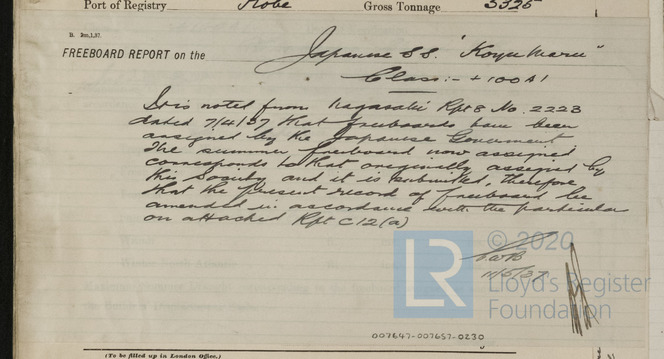 Port of Registry Kobe Gross Tonnage 5325
B. Dec.1,37.
FREEBOARD REPORT on the Japanese S.S. "Koyu Maru"
Class:- +100A1
It is noted from Nagasaki Rpt 8 No. 2223
dated 7/4/37 that freeboards have been
assigned by the Japanese Government
The summer freeboard now assigned
corresponds to that originally assigned by
this Society and it is submitted, therefore
that the present record of freeboard be
amended in accordance with the particulars
on attached Rpt C12(a)
11/5/37
© 2020
LR
Lloyd's Register
Foundation
007647-007657-0230
(To be filled up in London Office.)